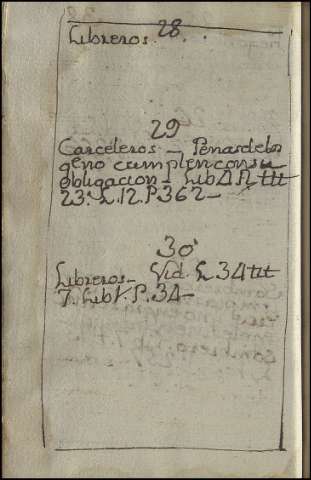 28
Libreros.
29
Carceleros — Penas de los
q̃ no cumplen con su
obligacion — Lib. 4 R. ttt
23. L. 12. P. 362 —
30
Libreros — Vid. L 34 ttt
7. Lib 1. P. 34 —